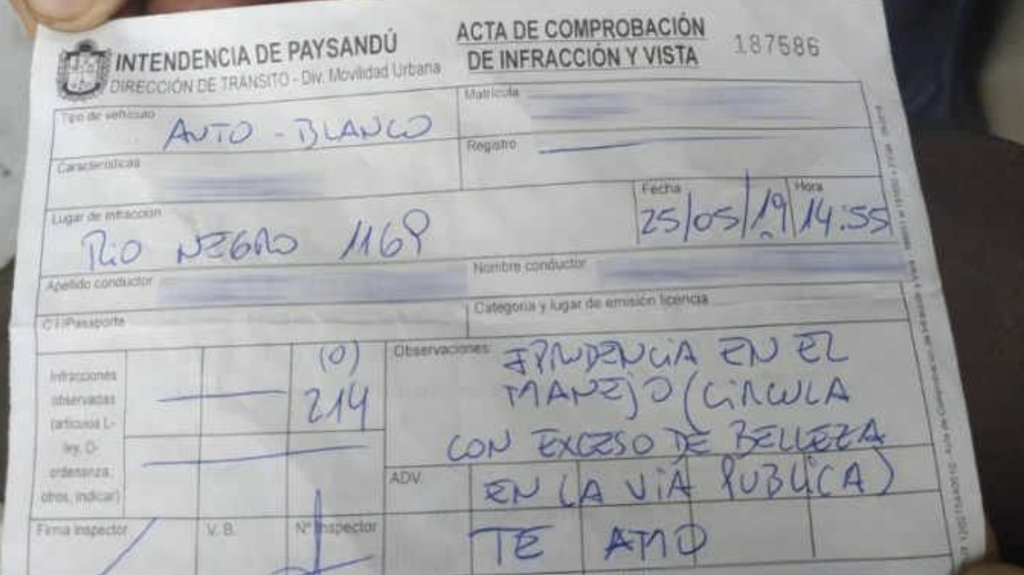 INTENDENCIA DE PAYSANDÚ
DIRECCIÓN DE TRÁNSITO - Div. Movilidad Urbana
ACTA DE COMPROBACIÓN
DE INFRACCIÓN Y VISTA
187586
Tipo de vehículo
AUTO - BLANCO
Matrícula
Características
Registro
Lugar de infracción
RIO NEGRO 1169
Fecha
25/05/19
Hora
14:55
Apellido conductor
Nombre conductor
C I /Pasaporte
Categoría y lugar de emisión licencia
Infracciones
observadas
(artículos L-
ley, O-
ordenanza,
otros, indicar)
(O)
214
Observaciones
EN EL
MANEJO (CIRCULA
CON EXCESO DE BELLEZA
ADV.
EN LA VIA PUBLICA)
TE AMO
Firma Inspector
V. B.
Nº Inspector